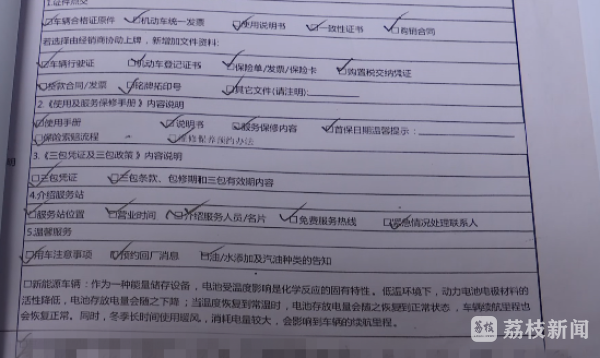 1.证件点交
□车辆合格证原件 □机动车统一发票 □使用说明书 □一致性证书 □购销合同
若选择由经销商协助上牌，新增加文件资料：
□车辆行驶证 □机动车登记证书 □保险单/发票/保险卡 □购置税交纳凭证
□按款合同/发票 □铭牌拓印号 □其它文件(请注明):
2.《使用及服务保修手册》内容说明
□使用手册 □说明书 □服务保修内容 □首保日期温馨提示：
□保险索赔流程 □维修保养预约办法
3.《三包凭证及三包政策》内容说明
□三包凭证 □三包条款、包修期和三包有效期内容
4.介绍服务站
□服务站位置 □营业时间 □介绍服务人员/名片 □免费服务热线 □紧急情况处理联系人
5.温馨服务
□用车注意事项 □预约回厂消息 □油/水添加及汽油种类的告知
□新能源车辆：作为一种能量储存设备，电池受温度影响是化学反应的固有特性。低温环境下，动力电池电极材料的
活性降低，电池存放电量会随之下降；当温度恢复到常温时，电池存放电量会随之恢复到正常状态，车辆续航里程也
会恢复正常。同时，冬季长时间使用暖风，消耗电量较大，会影响到车辆的续航里程。
荔枝 荔枝新闻